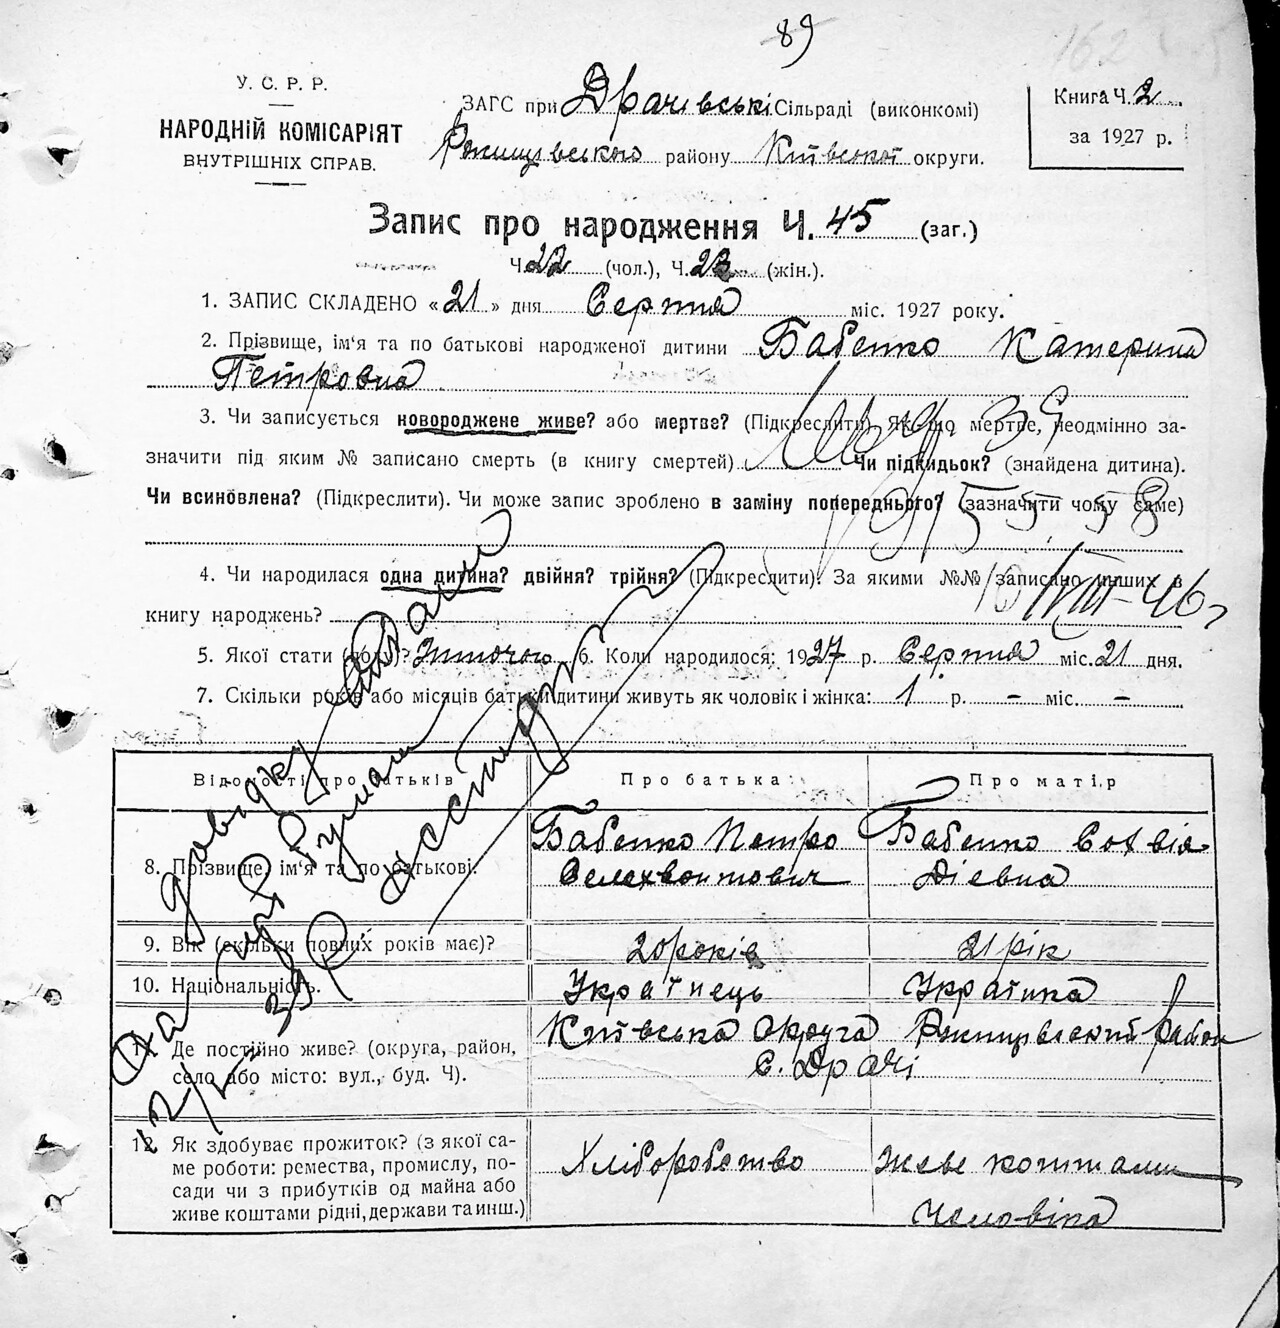 89
162
У. С. Р. Р.
НАРОДНІЙ КОМІСАРІЯТ
ВНУТРІШНІХ СПРАВ.
ЗАГС при Драчівські Сільраді (виконкомі)
Ржищівського району Київської округи.
Книга Ч. 2
за 1927 р.
Запис про народження Ч. 45 (заг.)
Ч. 22 (чол.), Ч. 23 (жін.).
1. ЗАПИС СКЛАДЕНО «21» дня Серпня міс. 1927 року.
2. Прізвище, ім'я та по батькові народженої дитини Бабенко Катерина
Петровна
3. Чи записується новороджене живе? або мертве? (Підкреслити). Якщо мертве, неодмінно за-
значити під яким № записано смерть (в книгу смертей) Чи підкидьок? (знайдена дитина).
Чи всиновлена? (Підкреслити). Чи може запис зроблено в заміну попереднього? (зазначити чому саме)
4. Чи народилася одна дитина? двійня? трійня? (Підкреслити). За якими №№ записано инших в
книгу народжень?
5. Якої стати (полу)? Жіночою 6. Коли народилося: 1927 р. Серпня міс. 21 дня.
7. Скільки років або місяців батьки дитини живуть як чоловік і жінка: 1 р. – міс. –
Відомості про батьків Про батька: Про матір
8. Прізвище, ім'я та по батькові. Бабенко Петро Бабенко Софвія
Селехвонтович Дієвна
9. Вік (скільки повних років має)? 20 років 21 рік
10. Національність. Українець Українка
11. Де постійно живе? (округа, район, Київська Округа Ржищівський район
село або місто: вул., буд. Ч). с. Драчі
12. Як здобуває прожиток? (з якої са- Хліборобство Жеве коштами
ме роботи: ремества, промислу, по-
сади чи з прибутків од майна або
живе коштами рідні, держави та инш.) Чоловіка